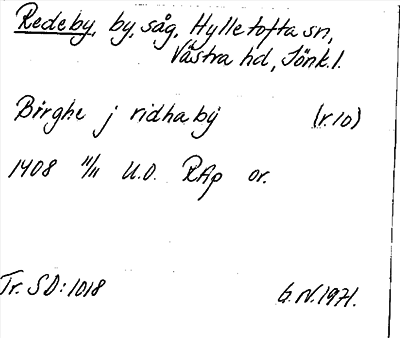 Redeby, by, såg, Hylletofta sn,
Västra hd, Jönk.l.
Birghe j ridhabÿ (r.10)
1408 11/11 U.O. RAp or.
Tr. SD:1018 G.N.1971.